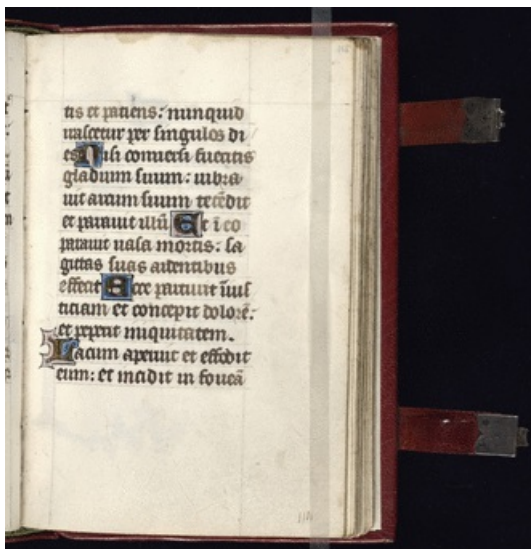 tis et patiens: nunquid
irascetur per singulos di
es Nisi conuersi fueritis
gladium suum: uibra
uit arcum suum tetēdit
et parauit illū Et ī eo
parauit uasa mortis: sa
gittas suas ardentibus
effecit Ecce parturit īius
ticiam et concepit dolorē:
et peperit iniquitatem.
Lacum aperuit et effodit
eum: et incidit in foueā